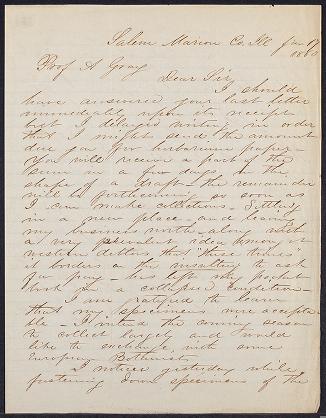 Salem Marion Co. Ill Jan 17
1860
Prof A Gray
Dear Sir,
I should
have answered your last letter
immediately upon its receipt
but I delayed writing in order
that I might send the amount
due you for herbarium paper—
You will receive a part of the
sum in a few days in the
shape of a draft—the remainder
will be forthcoming so soon as
I can make collections. Settling
in a new place—and leaving
my business north—along with
a very prevalent idea among
western debtors that "these times"
it borders on the insulting to ask
for pay— has left my pocket
book in a collapsed condition—
I am gratified to learn
that my specimens were accepta-
ble— I intend the coming season
to collect largely and would
like to exchange with some
European Botanists.
I noticed yesterday while
fastening down specimens of the